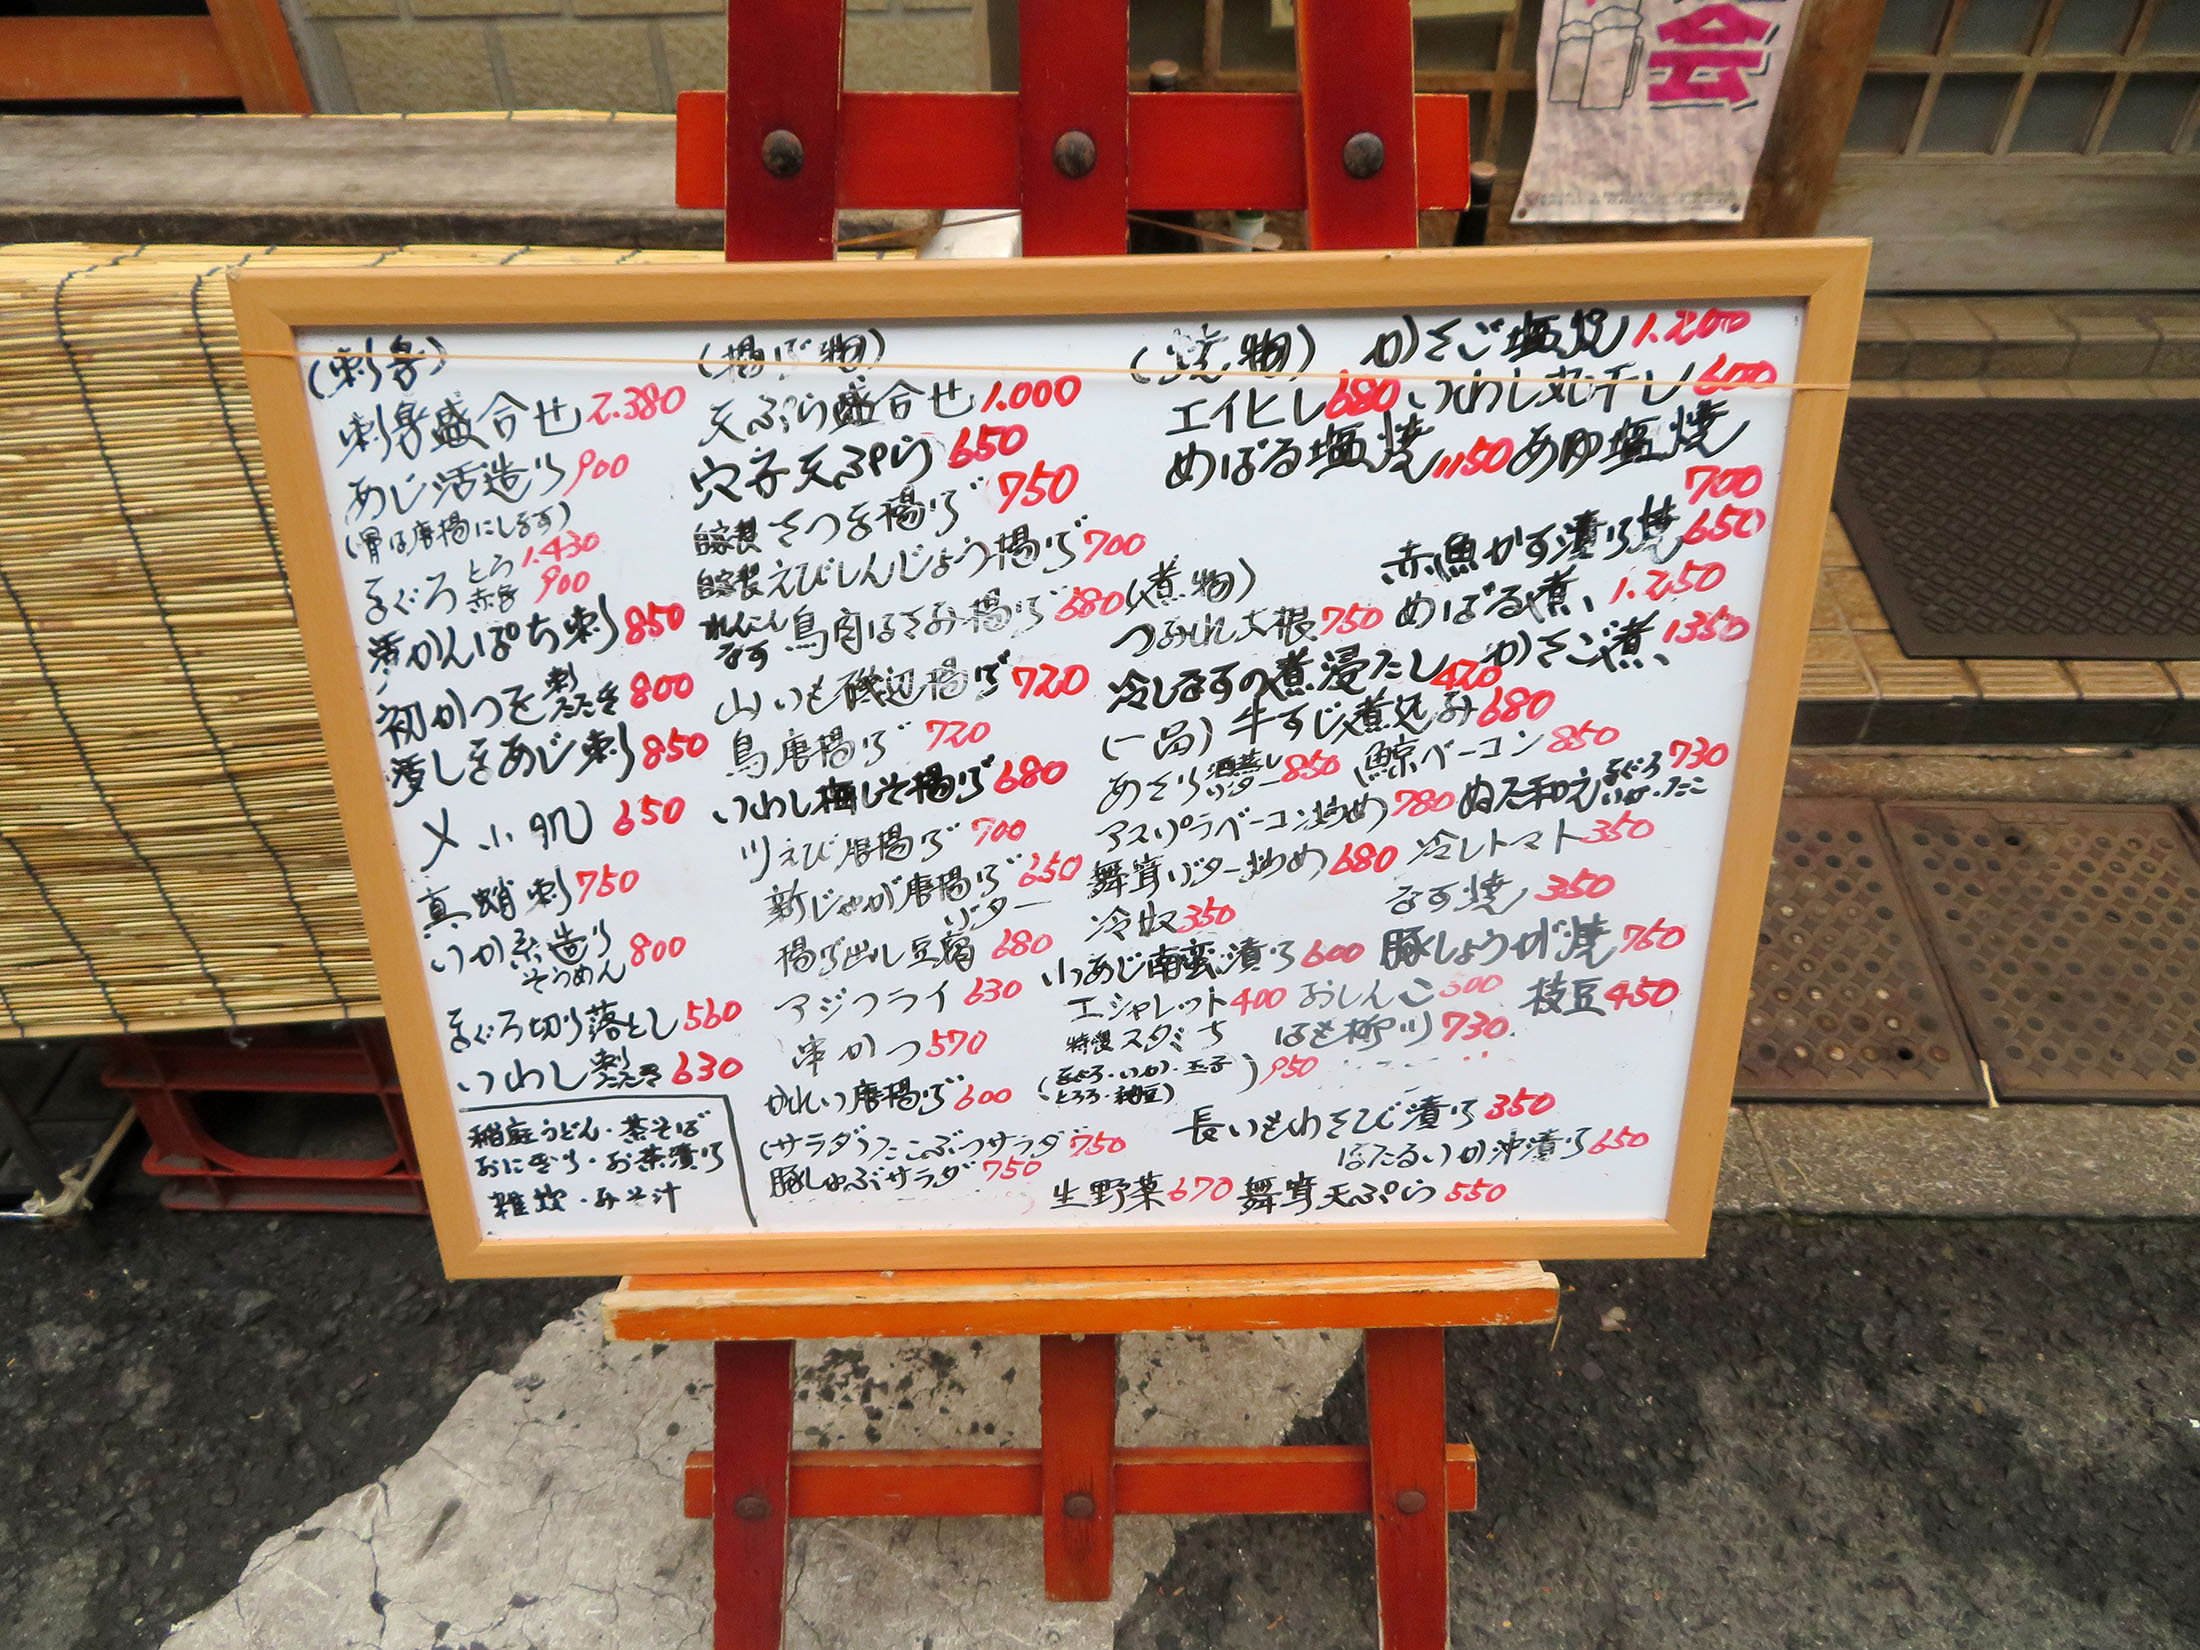 会
(刺身)
刺身盛合せ 2.380
あじ活造り 900
(骨は唐揚にします)
まぐろ とろ 1.430
赤身 900
かんぱち刺 850
初かつを 刺 たたき 800
しまあじ刺 850
〆小肌 650
真蛸刺 750
いか糸造り 800
そうめん
まぐろ切り落とし 560
いわし 刺 たたき 630
稲庭うどん・茶そば
おにぎり・お茶漬け
雑炊・みそ汁
(揚げ物)
天ぷら盛合せ 1.000
穴子天ぷら 650
自家製 さつま揚げ 750
自家製 えびしんじょう揚げ 700
れんこん なす 鳥肉はさみ揚げ 680
山いも磯辺揚げ 720
鳥唐揚げ 720
いわし梅しそ揚げ 680
川えび唐揚げ 700
新じゃが唐揚げ 650
バター
揚げ出し豆腐 680
アジフライ 630
串かつ 570
かれい唐揚げ 600
(サラダ) たこぶつサラダ 750
豚しゃぶサラダ 750
(焼物) かさご塩焼 1.200
エイヒレ 680 いわし丸干し 600
めばる塩焼 1150 あゆ塩焼
700
赤魚かす漬け焼 650
(煮物) めばる煮 1.250
つみれ大根 750 かさご煮 1350
冷しなすの煮浸たし 420
(一品) 牛すじ煮込み 680
あさり 酒蒸し バター 850 鯨ベーコン 850
アスパラベーコン炒め 780 ぬた和え まぐろ いか・たこ 730
舞茸バター炒め 680 冷しトマト 350
冷奴 350 なす焼 350
小あじ南蛮漬け 600 豚しょうが焼 760
エシャレット 400 おしんこ 500 枝豆 450
特製 スタミナ はも柳川 730
(まぐろ・いか・玉子 とろろ・納豆) 950
長いもわさび漬け 350
ほたるいか沖漬け 650
生野菜 670 舞茸天ぷら 550